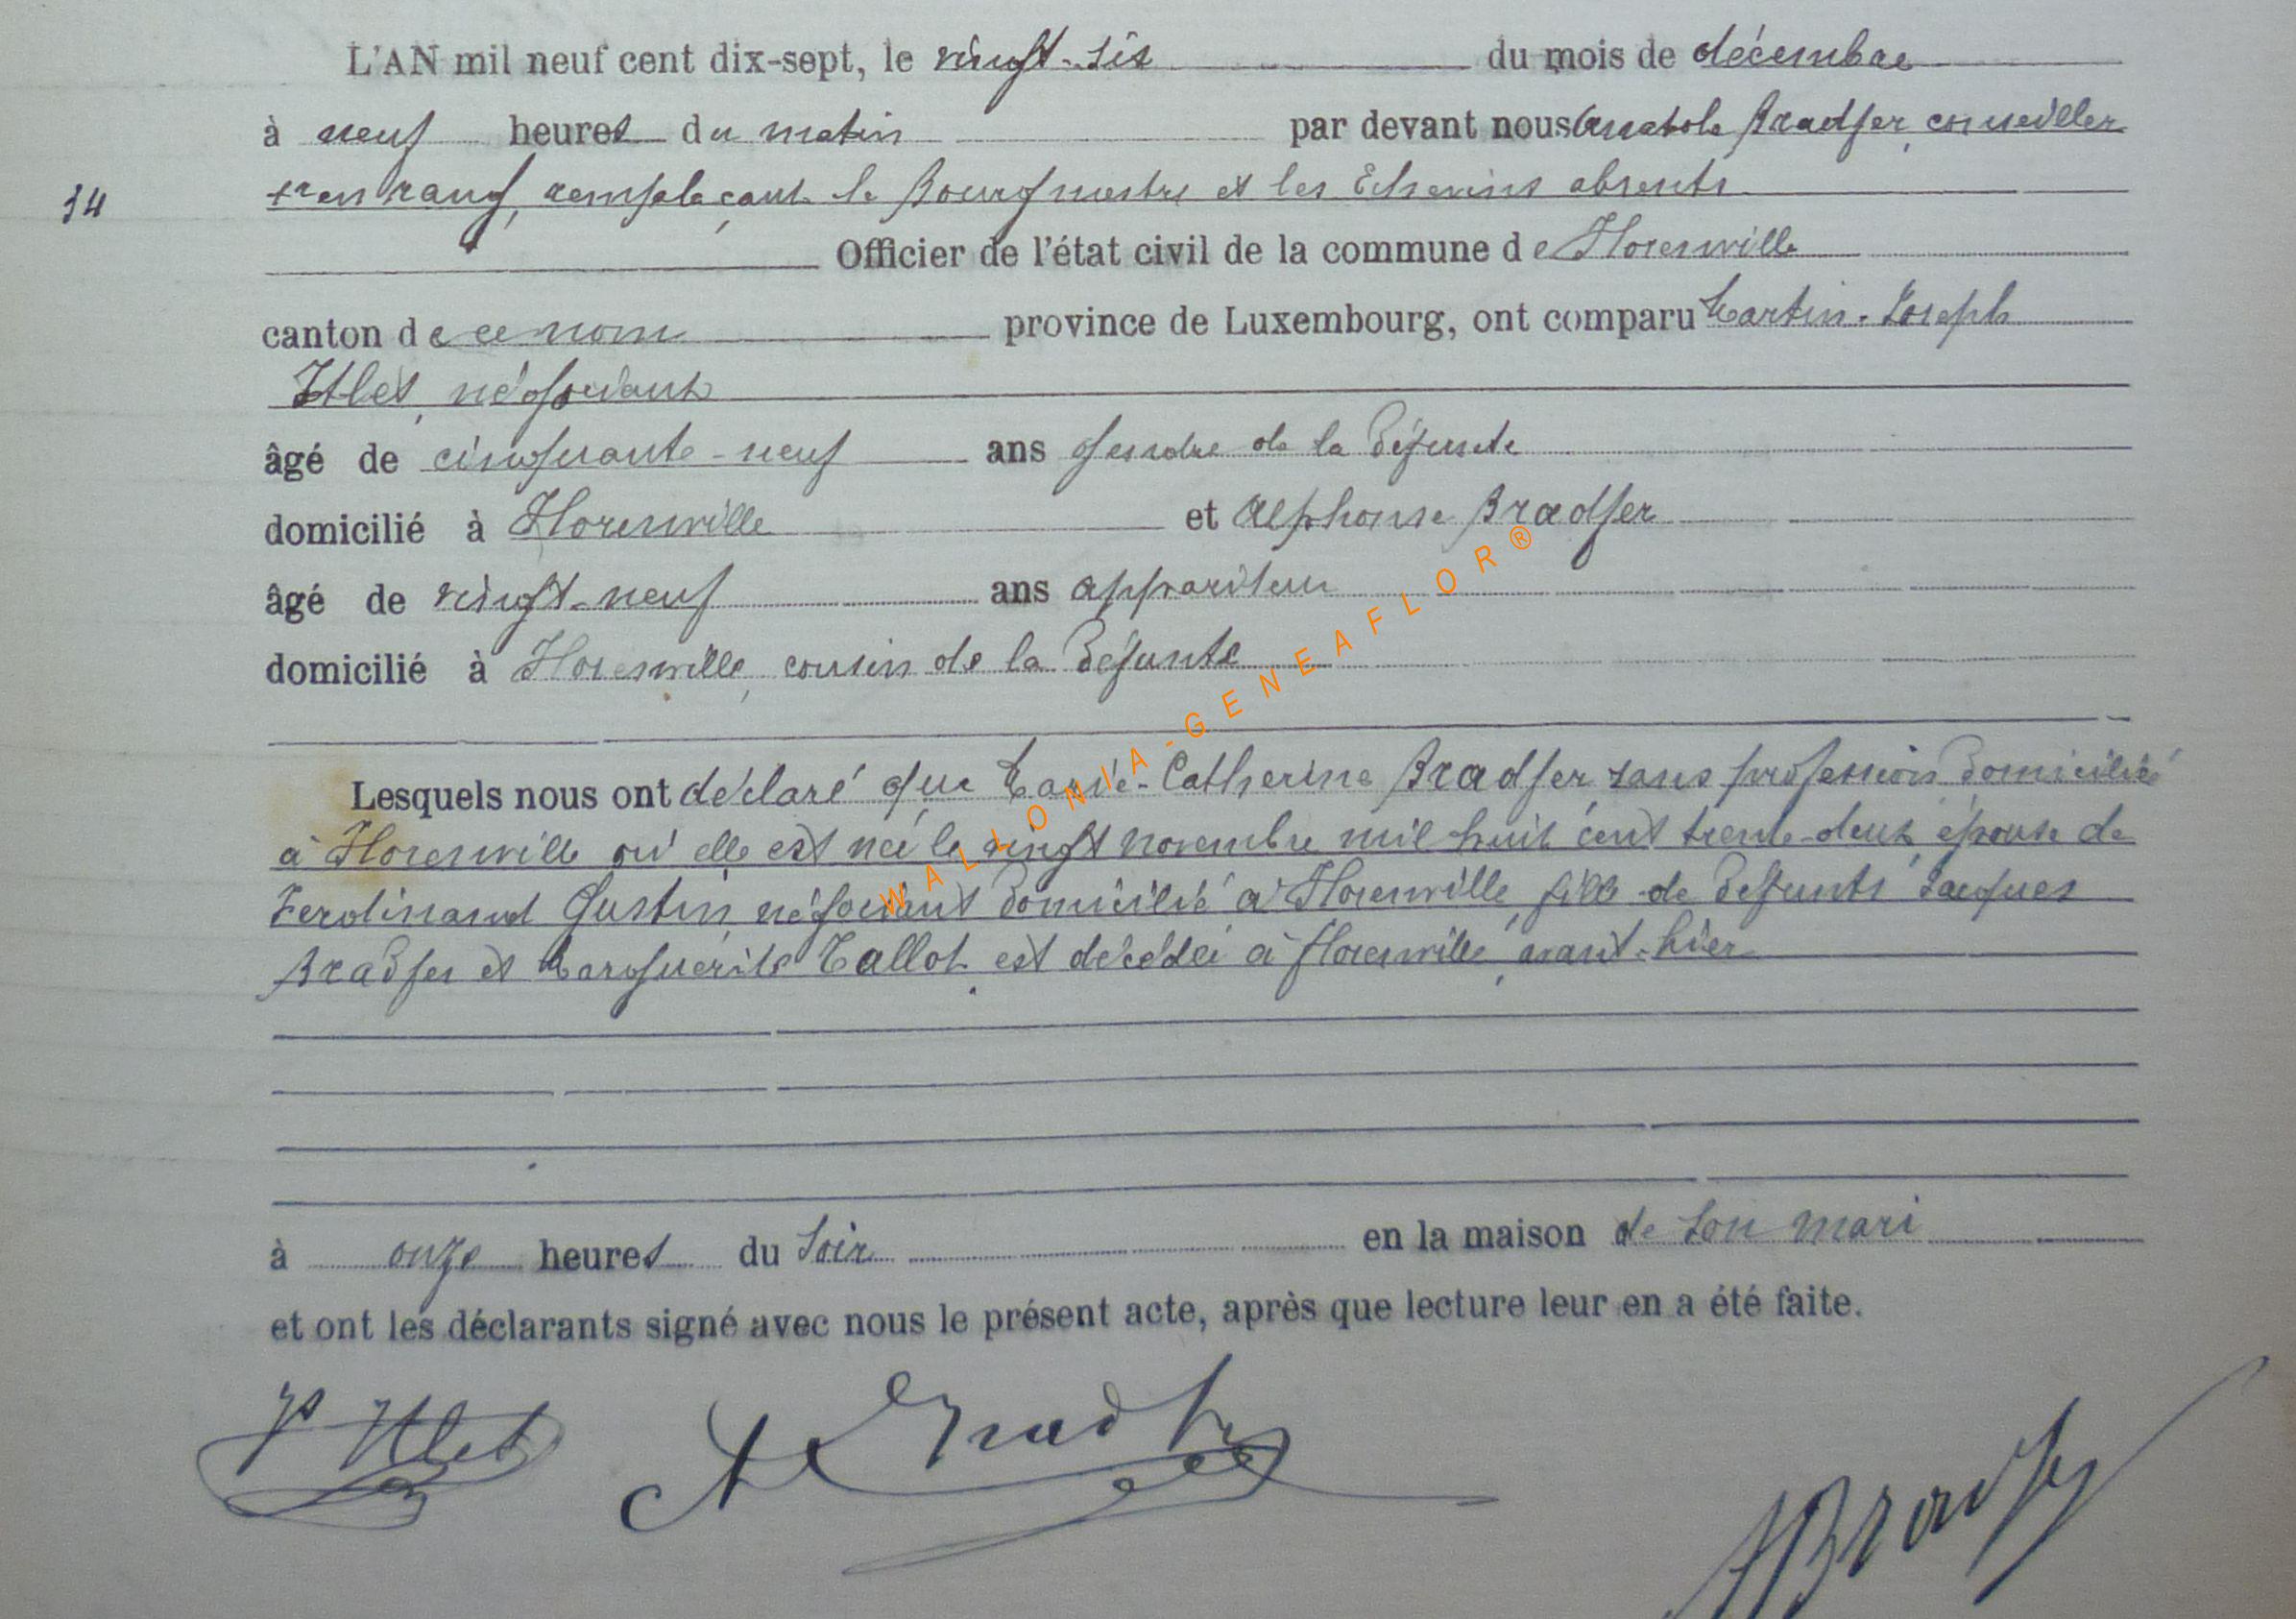 L'AN mil neuf cent dix-sept, le vingt-six du mois de décembre
à neuf heures du matin par devant nous Anatole Bradfer, conseiller
1er en rang, remplaçant le Bourgmestre et les Echevins absents
34
Officier de l'état civil de la commune de Florenville
canton de ce nom province de Luxembourg, ont comparu Martin-Joseph
négociant
âgé de cinquante-neuf ans gendre de la défunte
domicilié à Florenville et Alphonse Bradfer
âgé de vingt-neuf ans appariteur
domicilié à Florenville, cousin de la défunte
WALLONIA-GENEAFLOR®
Lesquels nous ont déclaré que Marie-Catherine Bradfer sans profession domiciliée
à Florenville où elle est née le vingt novembre mil huit cent trente-deux, épouse de
Ferdinand Gustin, négociant domicilié à Florenville, fille de défunts Jacques
Bradfer et Marguerite Tallot est décédée à Florenville, avant-hier
à onze heures du soir en la maison de son mari
et ont les déclarants signé avec nous le présent acte, après que lecture leur en a été faite.
A Bradfer
ABradfer